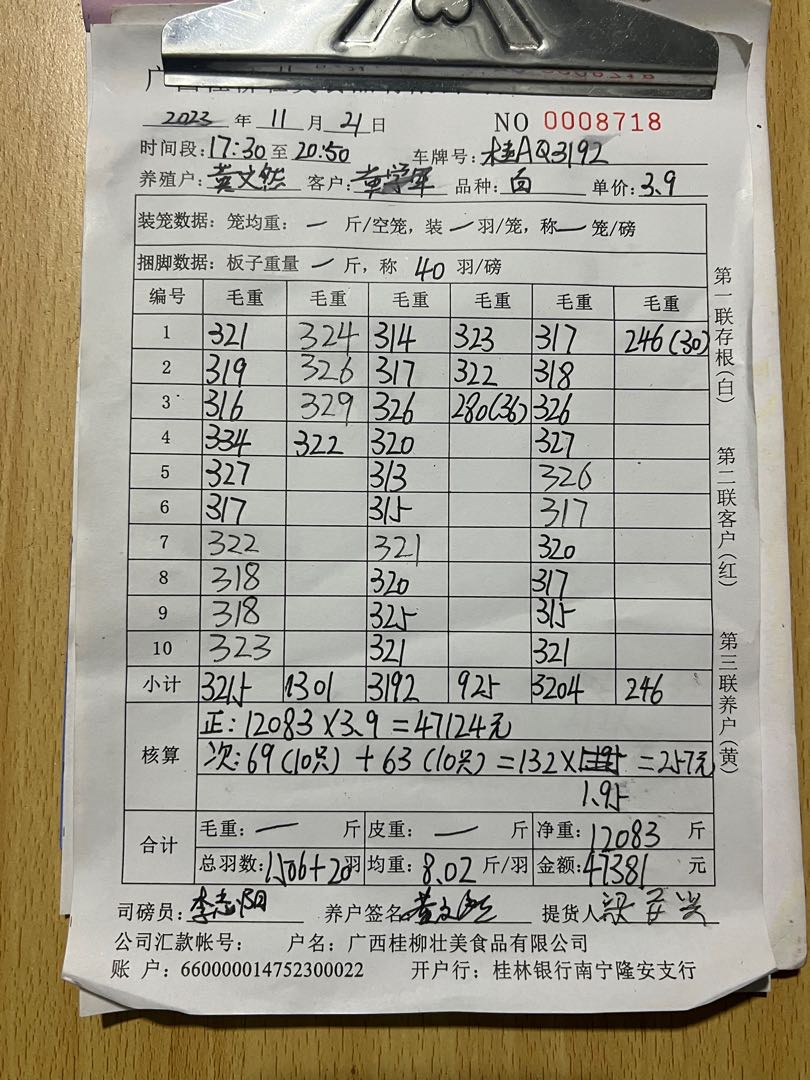 2023 年 11 月 21 日 NO 0008718
时间段:17:30 至 20:50 车牌号:桂AQ3192
养殖户:黄文然 客户:覃学军 品种:白 单价:3.9
装笼数据:笼均重:一 斤/空笼,装一羽/笼,称一笼/磅
捆脚数据:板子重量 一 斤,称 40 羽/磅
编号 毛重 毛重 毛重 毛重 毛重 毛重
1 321 324 314 323 317 246(30)
2 319 326 317 322 318
3 316 329 326 280(36) 326
4 334 322 320 327
5 327 313 326
6 317 315 317
7 322 321 320
8 318 320 317
9 318 325 315
10 323 321 321
小计 3215 1301 3192 925 3204 246
核算
正:12083×3.9=47124元
次:69(10只)+63(10只)=132× =257元
1.95
合计
毛重:一 斤 皮重:一 斤 净重:12083 斤
总羽数:1506+20羽 均重:8.02 斤/羽 金额:47381 元
司磅员:李志阳 养户签名 黄文然 提货人
公司汇款帐号: 户名:广西桂柳壮美食品有限公司
账 户:660000014752300022 开户行:桂林银行南宁隆安支行
第一联存根(白)
第二联客户(红)
第三联养户(黄)